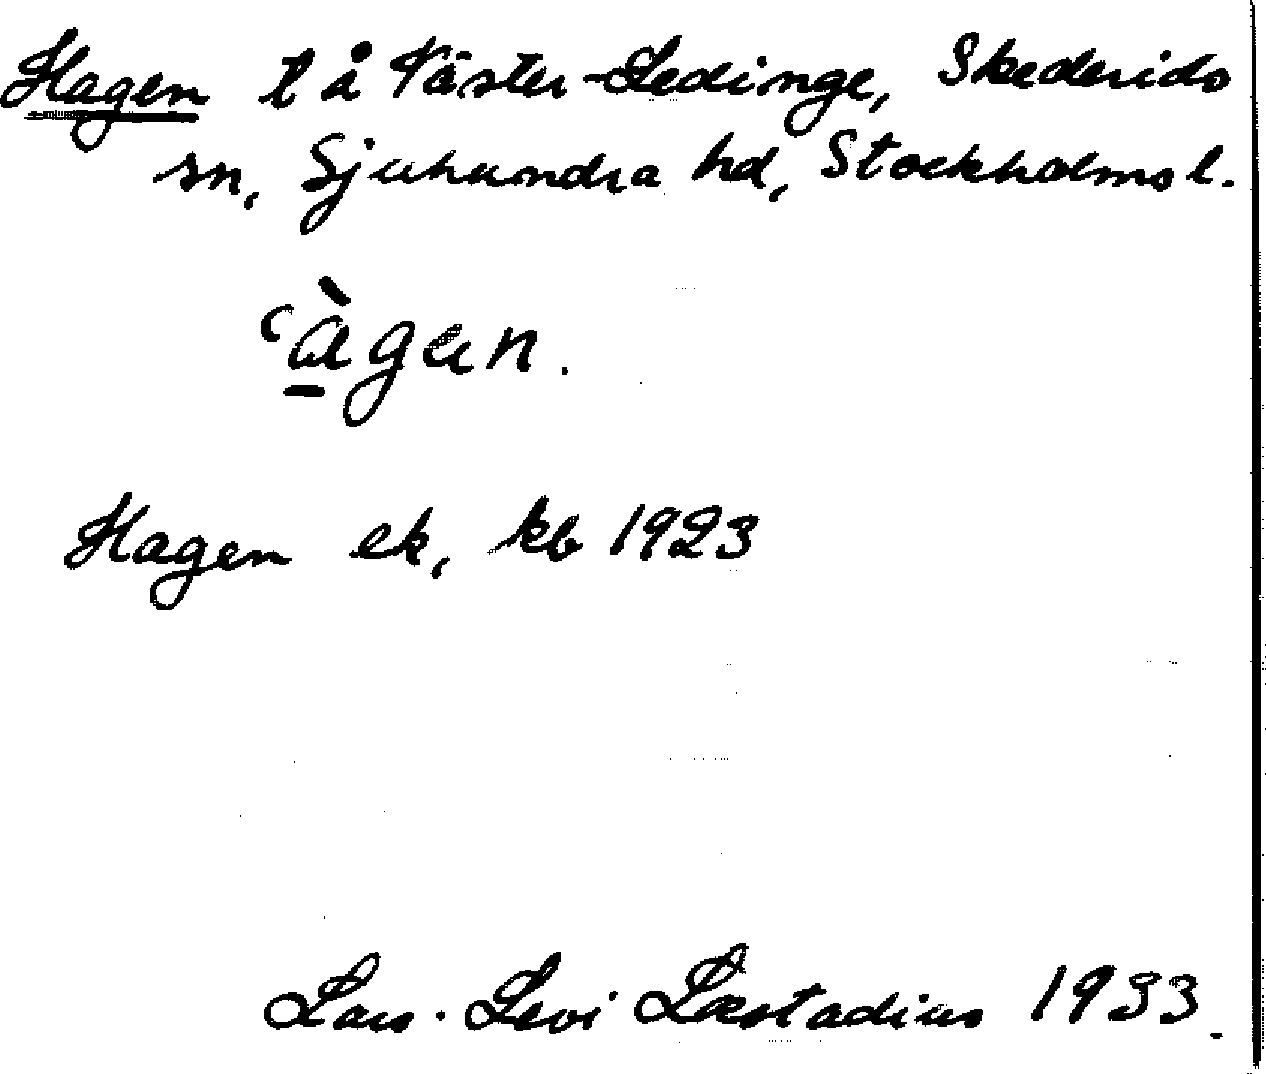 Hagen t å Väster-Ledinge, Skederids
sn, Sjuhundra hd, Stockholms l.
Hagen ek, kb 1923
Lars-Levi Læstadius 1933.